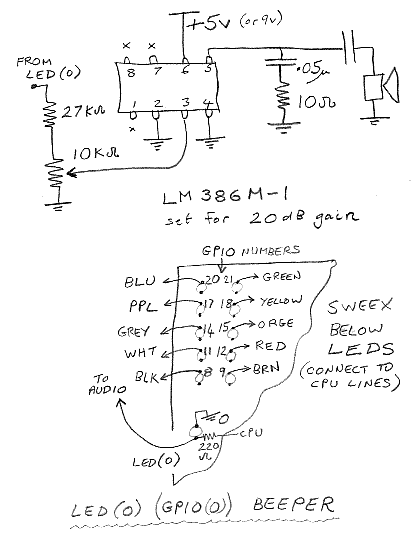 +5v (or 9v)
x x
FROM LED(0)
8 7 6 5
.05µ
27KΩ
1 2 3 4
x
10Ω
10KΩ
LM 386 M-1
set for 20dB gain
GPIO NUMBERS
BLU 20 21 GREEN
PPL 17 18 YELLOW
GREY 14 15 ORGE
WHT 11 12 RED
BLK 8 9 BRN
SWEEX
BELOW
LEDS
(CONNECT TO
CPU LINES)
TO
AUDIO
0
CPU
220
Ω
LED(0)
LED(0) (GPIO(0)) BEEPER